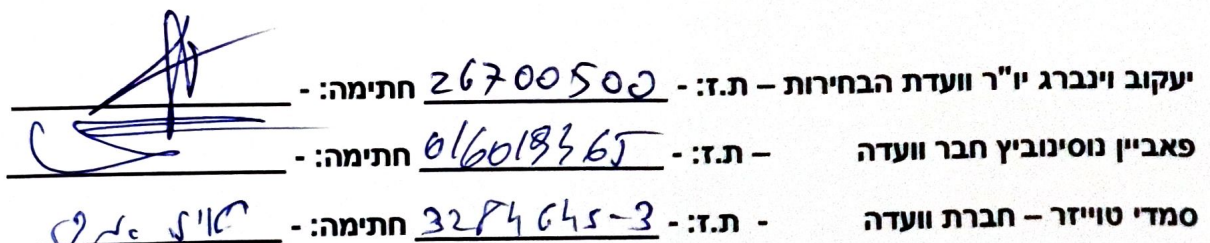 יעקוב וינברג יו"ר וועדת הבחירות – ת.ז: - 26700500 חתימה: -
פאביין נוסינוביץ חבר וועדה – ת.ז: - 016019365 חתימה: -
סמדי טוייזר – חברת וועדה - ת.ז: - 3284645-3 חתימה: -